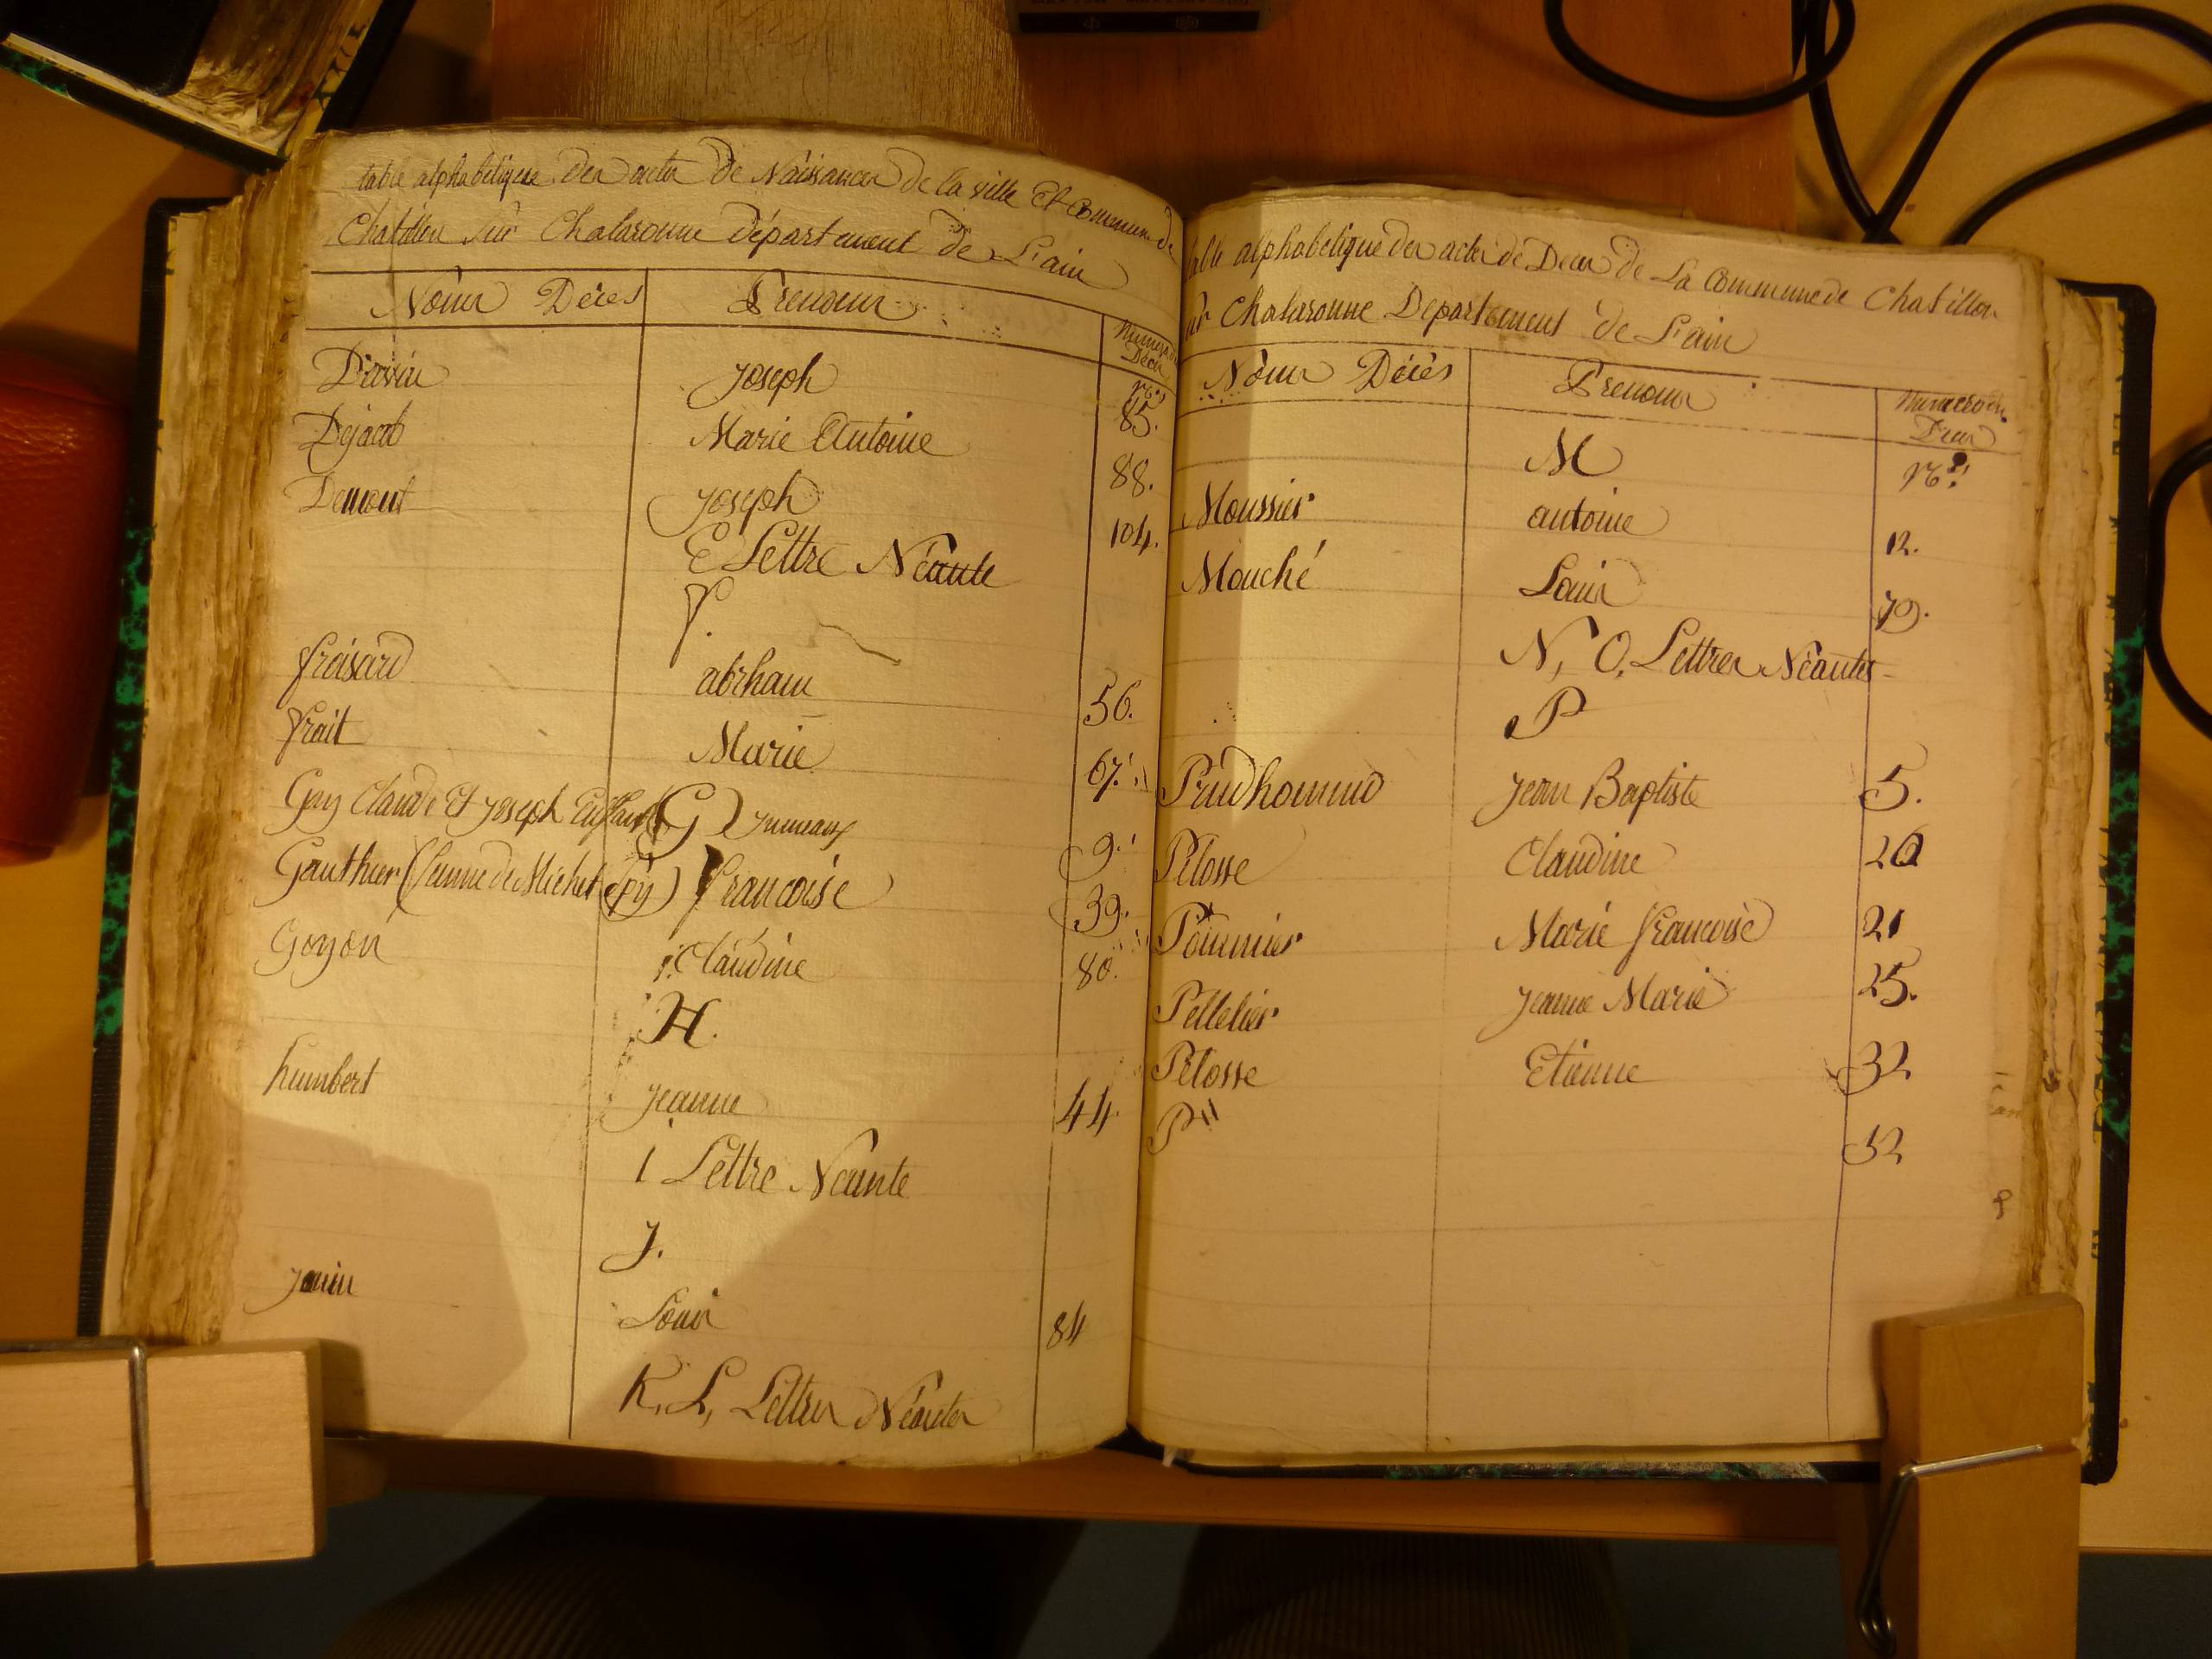 table alphabetique des actes de Naissances de la ville Et Commune de
Chatillon sur Chalaronne département de L'ain
Noms Décés Prenoms Numeros des Déces
Joseph nos 85.
Dejacob Marie Antoine 88.
Demont Joseph 104.
E Lettre Néante
F.
froisard abrham 56.
frait Marie 67.
Guy Claude Et Joseph Enfans (G) Jumeaux 9.
Gauthier (femme de Michel Epy) francoise 39.
Goyon Claudine 80.
H.
humbert Jeanne 44
I Lettre Néante
J.
Janin Louis 84
K, L, Lettres Néantes
table alphabetique des actes de Deces de La Commune de Chatillon
sur Chalaronne Departement de L'ain
Noms Décès Prenoms Numeros des Deces
M nos
Moussier antoine 12.
Mouché Louis 79.
N, O, Lettres Néantes
P
Prudhomme Jean Baptiste 5.
Pelosse Claudine 20
Pommier Marie francoise 21
Pelletier Jeanne Marie 25.
Pelosse Etienne 32
P 52